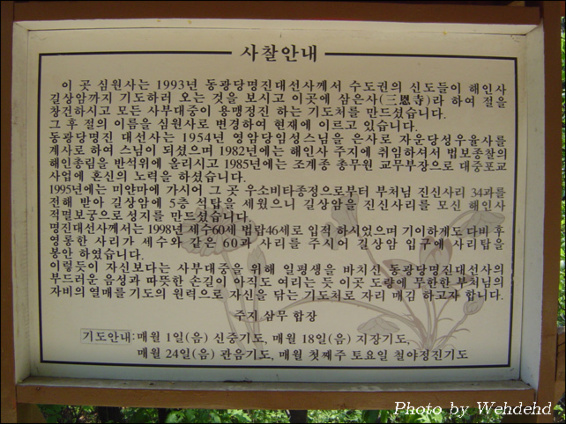 사찰안내
이 곳 심원사는 1993년 동광당명진대선사께서 수도권의 신도들이 해인사
길상암까지 기도하러 오는 것을 보시고 이곳에 삼은사(三恩寺)라 하여 절을
창건하시고 모든 사부대중이 용맹정진 하는 기도처를 만드셨습니다.
그 후 절의 이름을 심원사로 변경하여 현재에 이르고 있습니다.
동광당명진 대선사는 1954년 영암당임성스님을 은사로 자운당성우율사를
계사로 하여 스님이 되셨으며 1982년에는 해인사 주지에 취임하셔서 법보종찰의
해인총림을 반석위에 올리시고 1985년에는 조계종 총무원 교무부장으로 대중포교
사업에 혼신의 노력을 하셨습니다.
1995년에는 미얀마에 가시어 그 곳 우소비타종정으로부터 부처님 진신사리 34과를
전해 받아 길상암에 5층 석탑을 세웠으니 길상암을 진신사리를 모신 해인사
적멸보궁으로 성지를 만드셨습니다.
명진대선사께서는 1998년 세수60세 법랍46세로 입적 하시었으며 기이하게도 다비 후
영롱한 사리가 세수와 같은 60과 사리를 주시어 길상암 입구에 사리탑을
봉안 하였습니다.
이렇듯이 자신보다는 사부대중을 위해 일평생을 바치신 동광당명진대선사의
부드러운 음성과 따뜻한 손길이 아직도 여리는 듯 이곳 도량에 무한한 부처님의
자비의 열매를 기도의 원력으로 자신을 닦는 기도처로 자리 매김 하고자 합니다.
주지 삼무 합장
기도안내: 매월 1일(음) 신중기도, 매월 18일(음) 지장기도,
매월 24일(음) 관음기도, 매월 첫째주 토요일 철야정진기도
Photo by Wehdehd